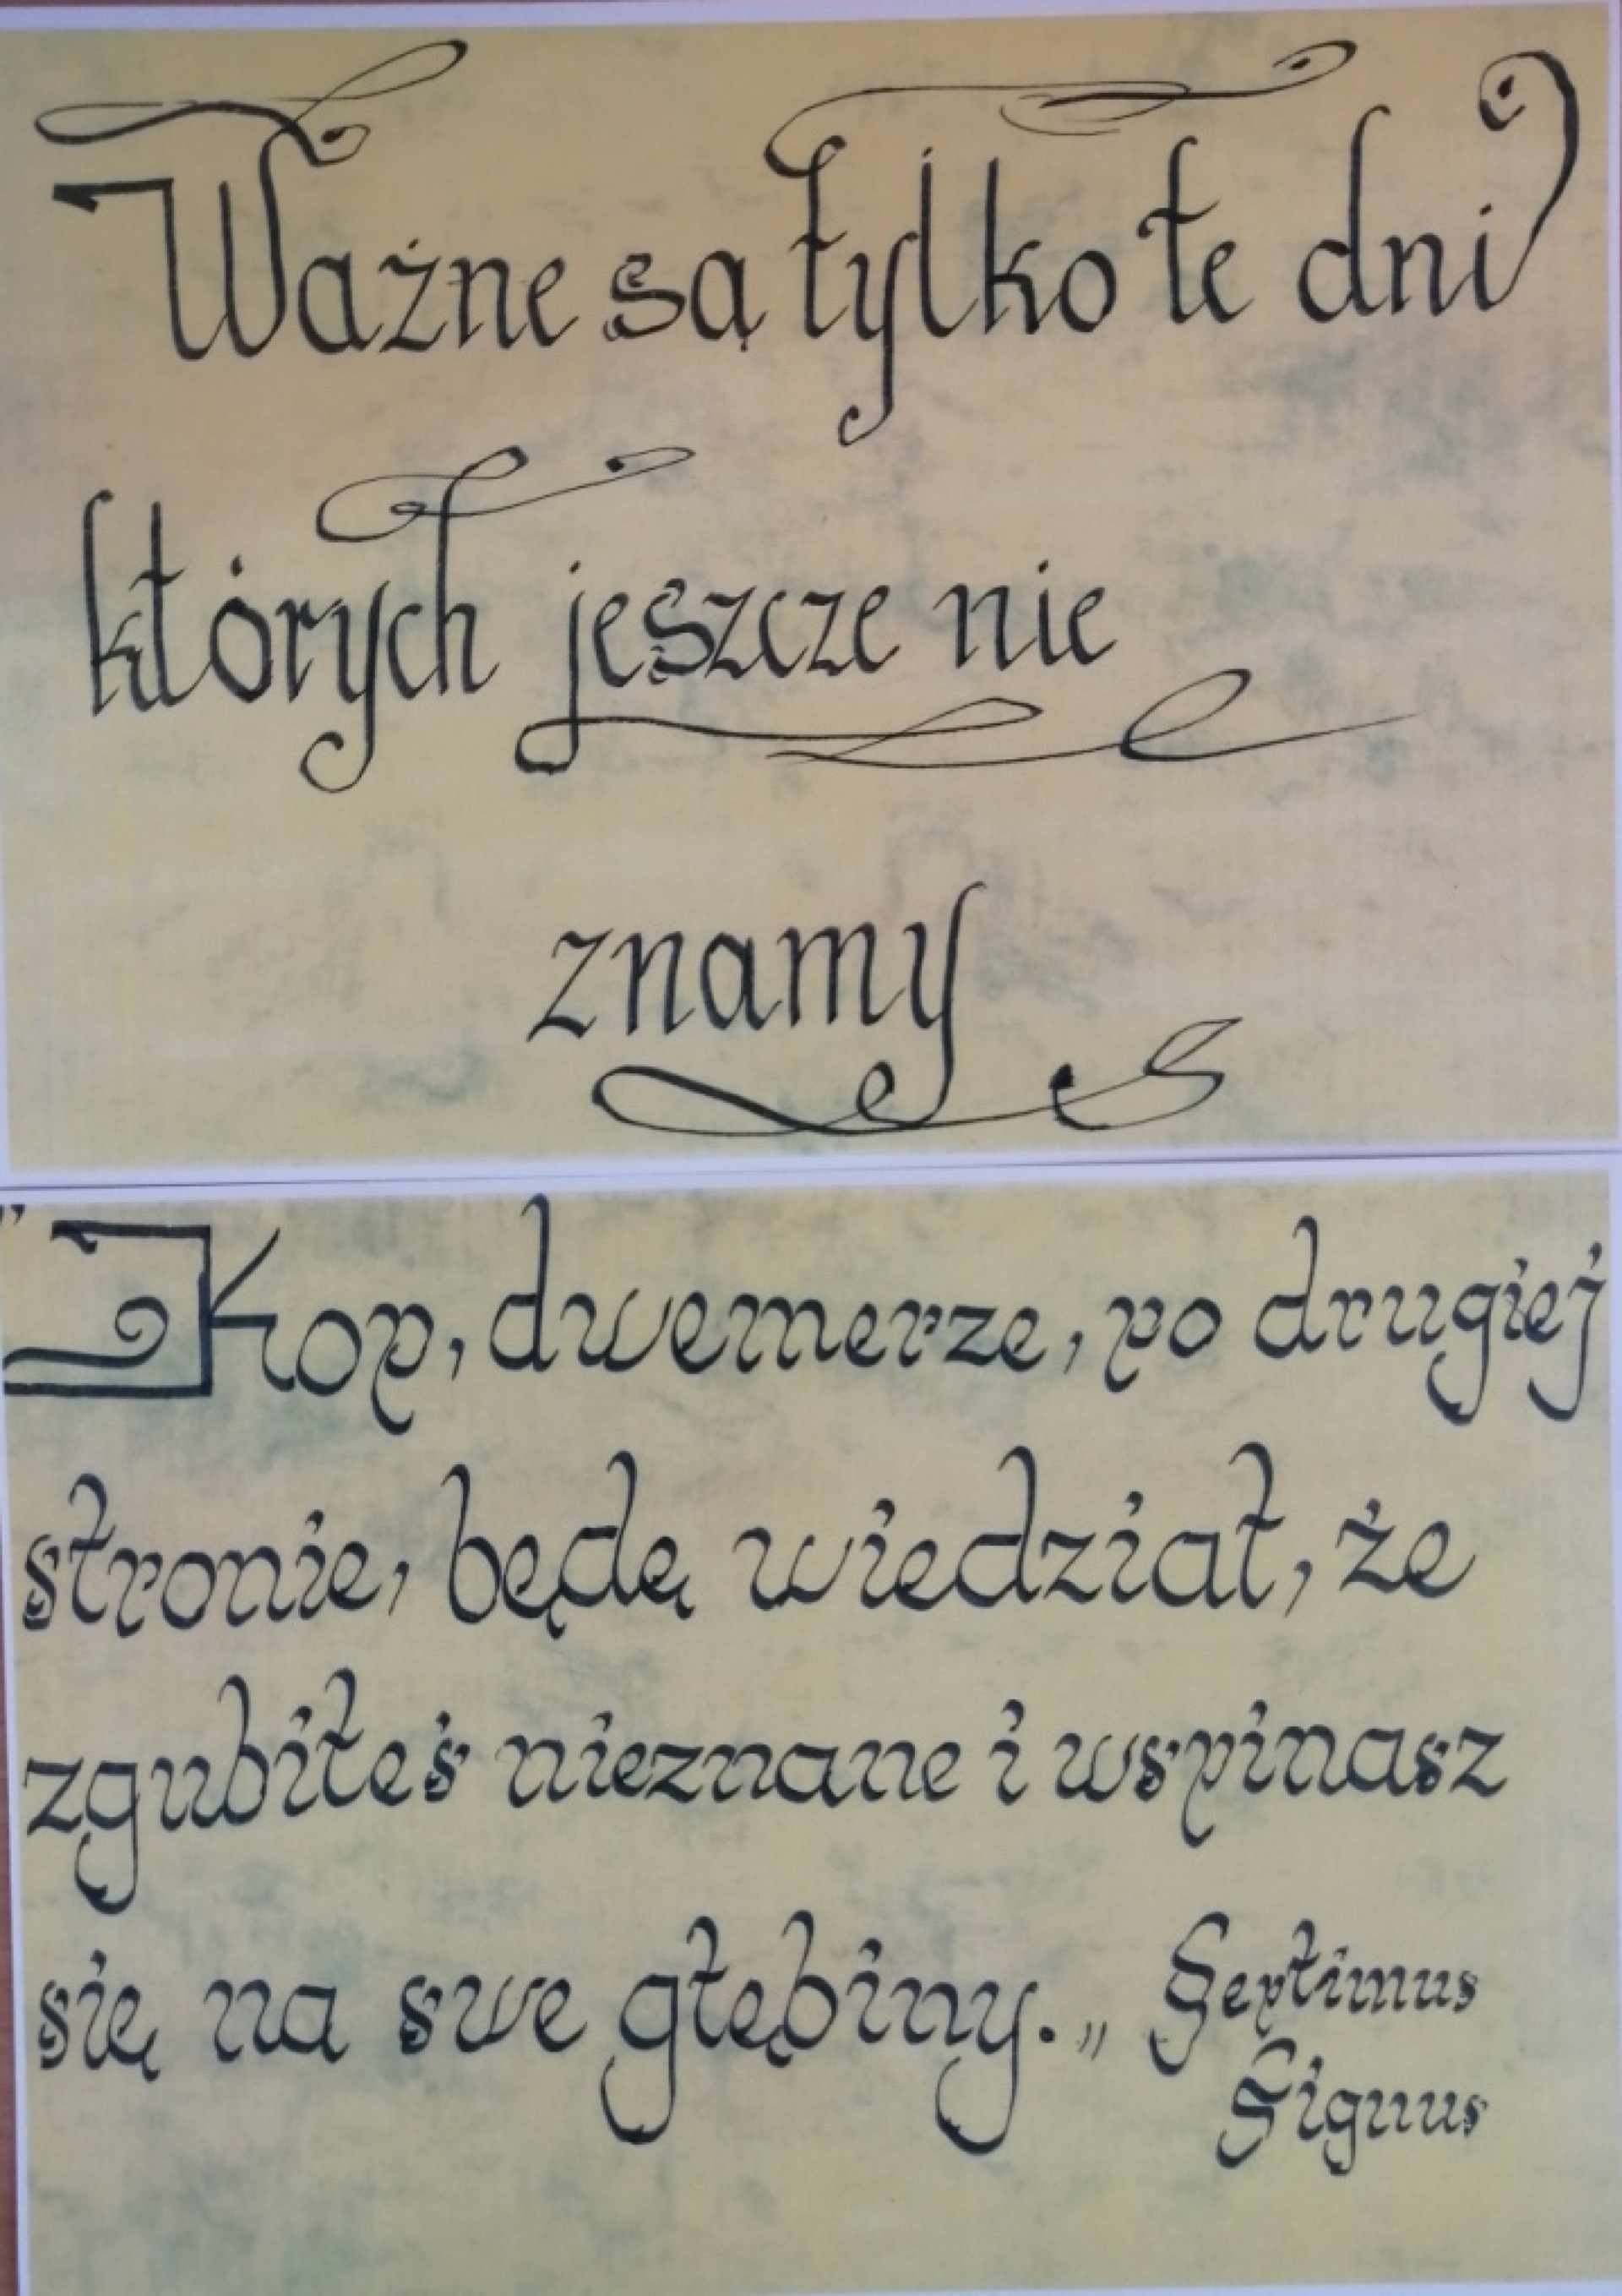 Ważne są tylko te dni
których jeszcze nie
znamy
"Kop, dwemerze, po drugiej
stronie, będę wiedział, że
zgubiłeś nieznane i wspinasz
się na swe głębiny.„ Septimus
Signus